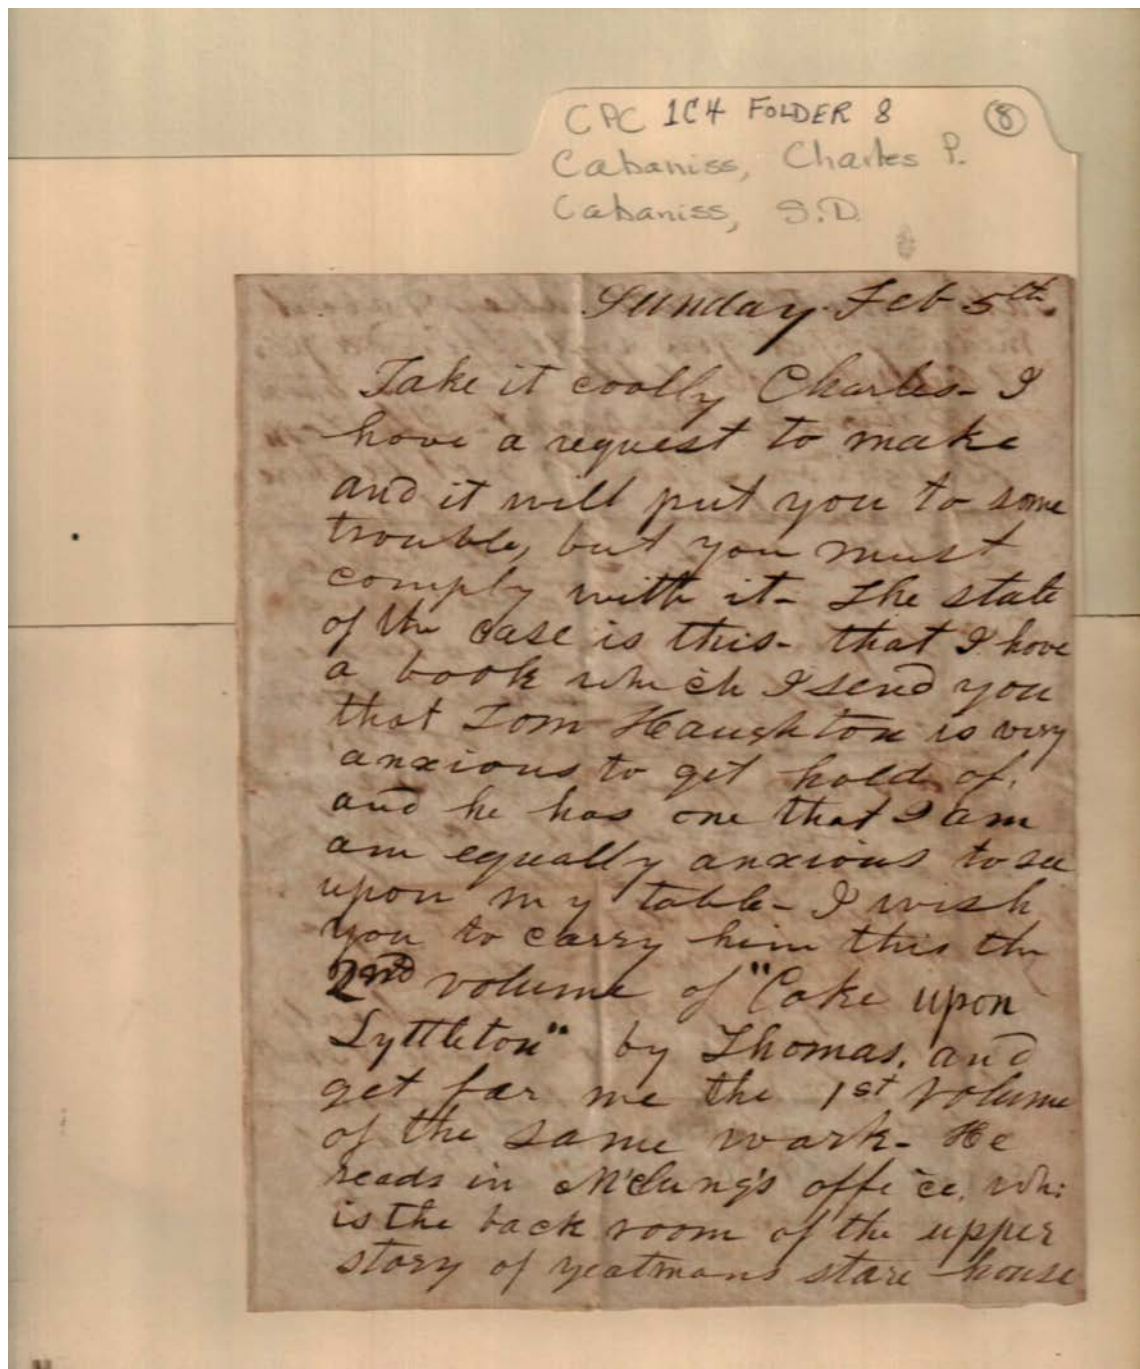 CPC 1C4 FOLDER 8 8
Cabaniss, Charles P.
Cabaniss, S.D.
Sunday Feb 5th.
Take it coolly Charles- I
have a request to make
and it will put you to some
trouble, but you must
comply with it- The state
of the case is this- that I have
a book which I send you
that Tom Haughton is very
anxious to get hold of,
and he has one that I am
am equally anxious to see
upon my table- I wish
you to carry him this the
2nd volume of "Coke upon
Lyttleton" by Thomas, and
get for me the 1st volume
of the same work- He
reads in McClung's office, whi:
is the back room of the upper
story of yeatmans store house